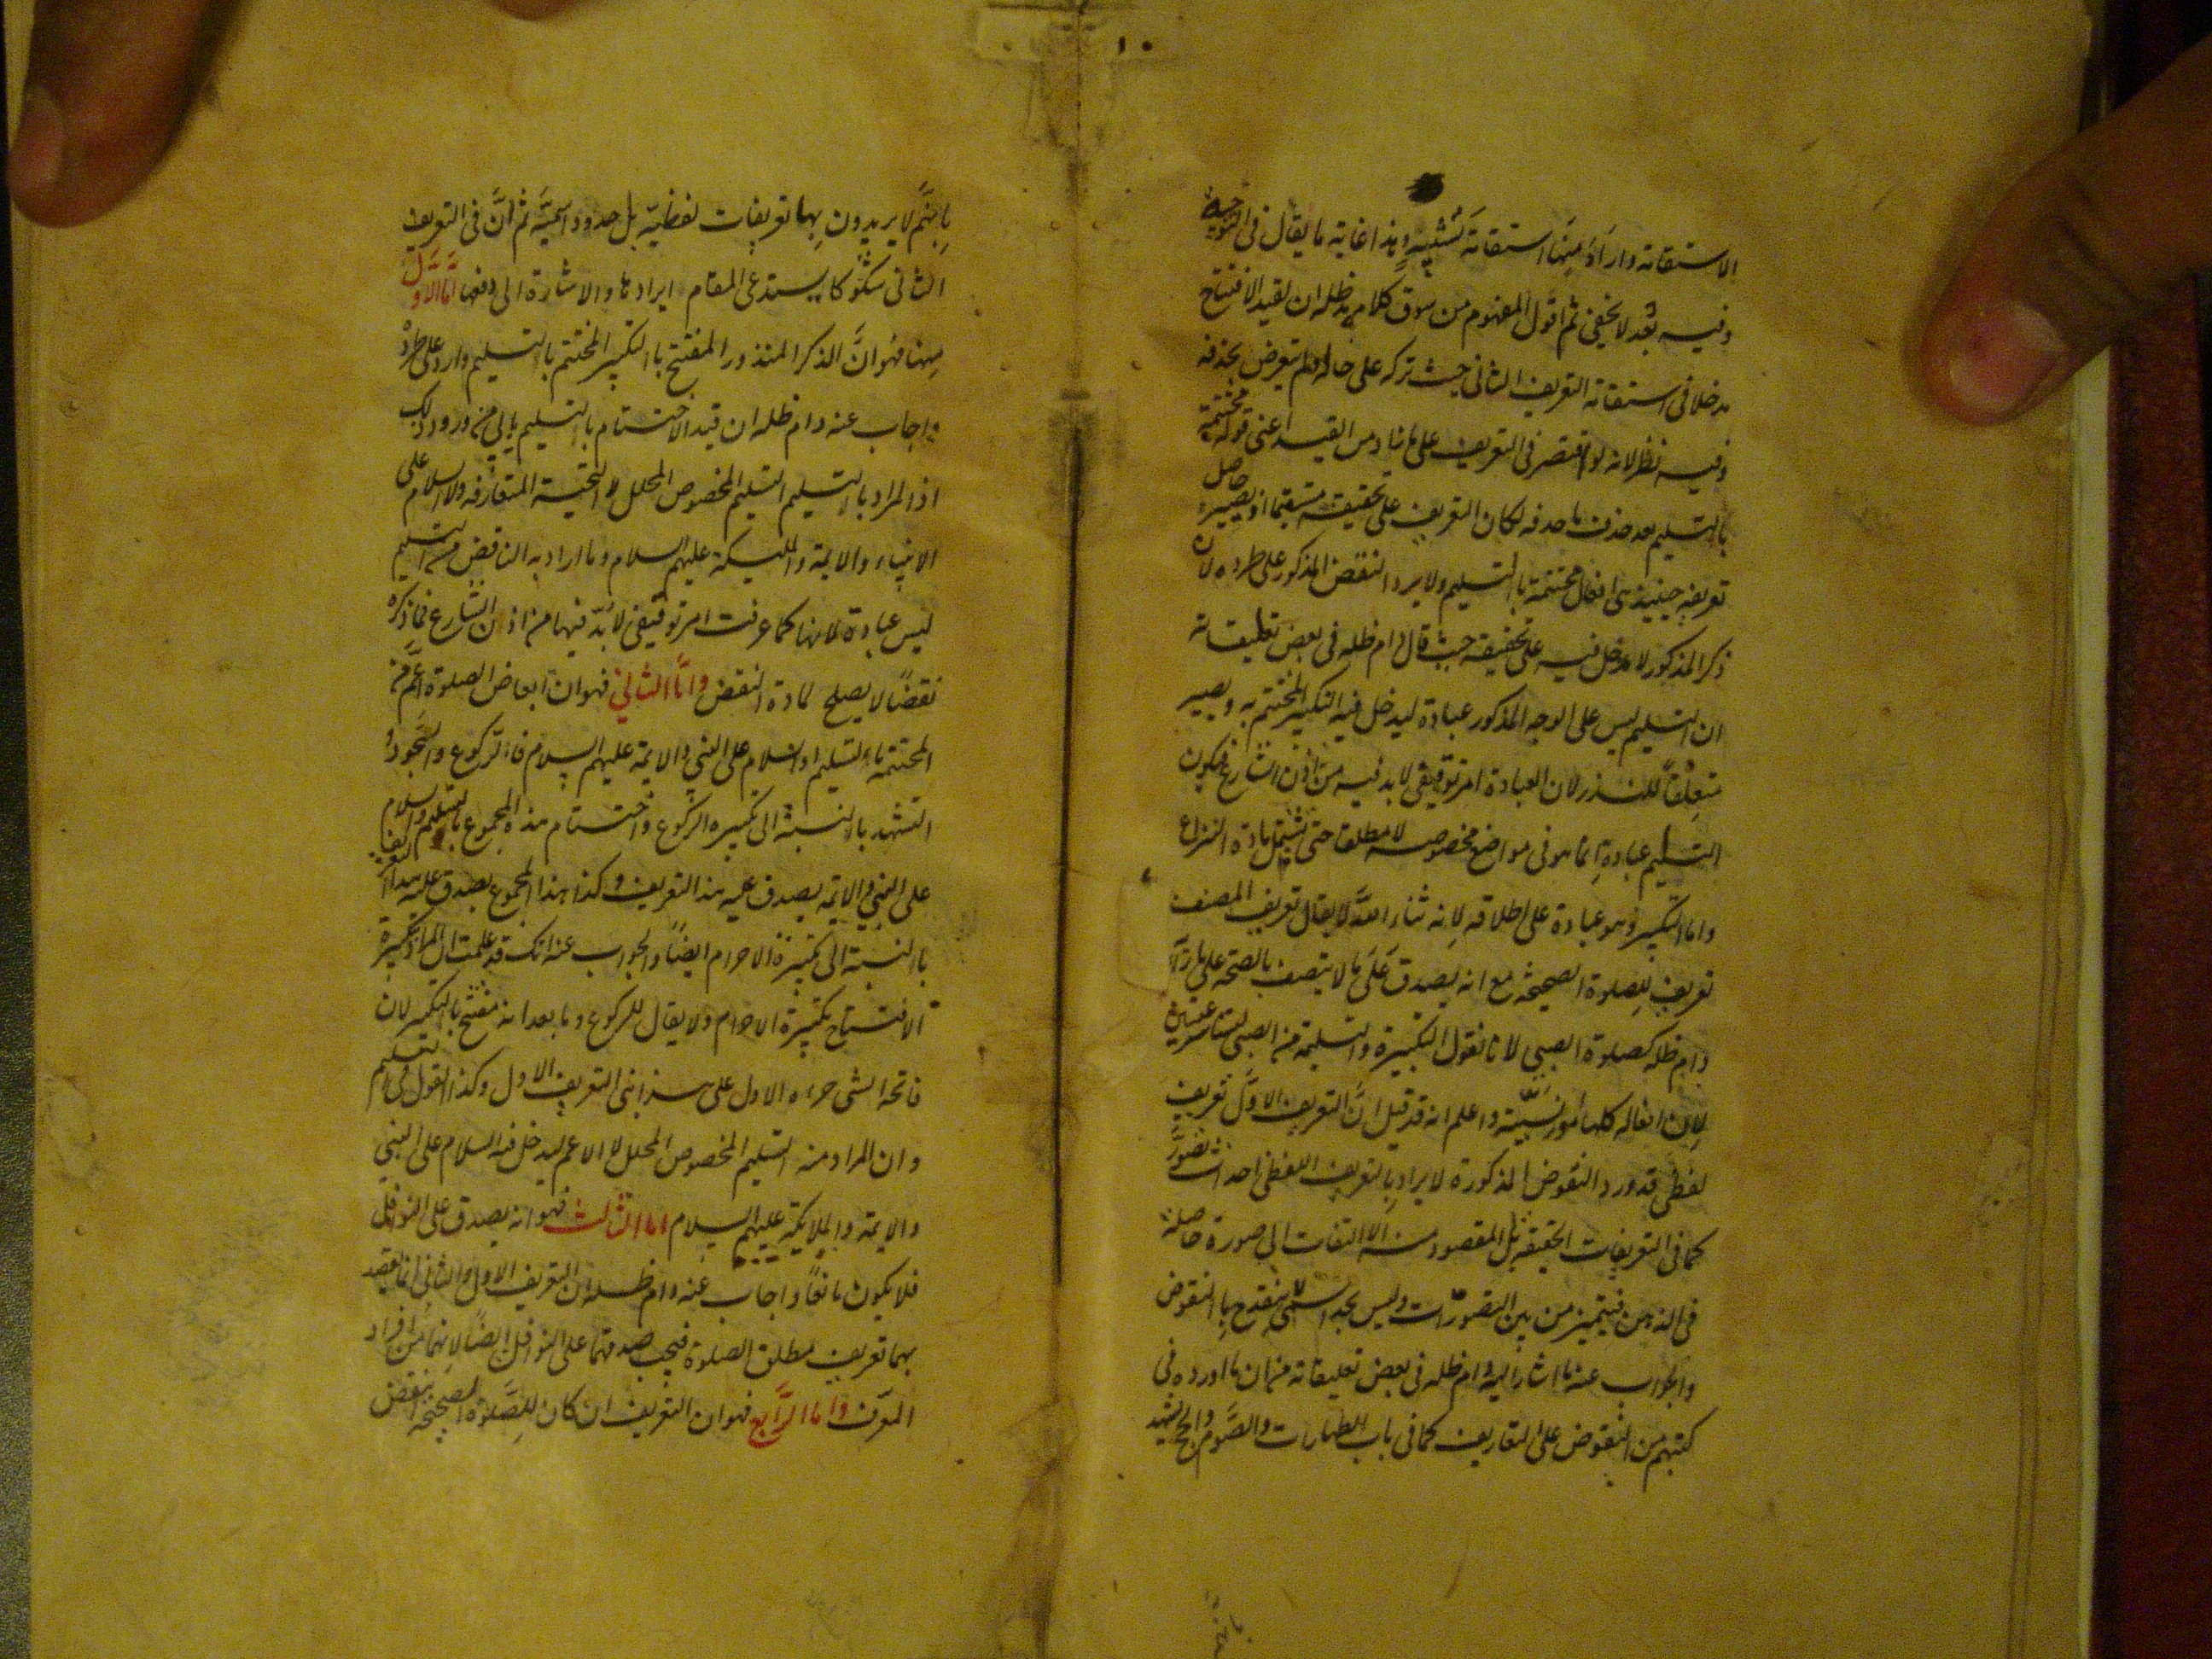 ١٠
الاستقامة واراد منها استقامة تشبيه وهذا غاية ما يقال فى التوجيه
وفيه بعد لا يخفى ثم اقول المفهوم من سوق كلامه مد ظله ان لقيد الافتتاح
مدخلا فى استقامة التعريف الثانى حيث تركه على حاله ولم يتعرض بحذفه
وفيه نظر لانه لو اقتصر فى التعريف على ما زاد من القيد اعنى قوله مختتمة
بالتسليم بعد حذف ما حذفه لكان التعريف على تحقيقه مستقيما اذ يصير حاصل
تعريفه حينئذ هى افعال مختتمة بالتسليم ولا يرد النقض المذكور على طرده لان
ذكر المذكور لا مدخل فيه على تحقيقه حيث قال دام ظله فى بعض تعليقاته
ان التسليم ليس على الوجه المذكور عبادة ليدخل فيه التكبير المختتم به ويصير
متعلقا للنذر لان العبادة امر توقيفى لا بد فيه من اذن الشارع فيكون
التسليم عبادة انما هو فى مواضع مخصوصه لا مطلقا حتى يشتمل مادة النزاع
واما التكبير فهو عبادة على اطلاقه لانه ثناء الله لا يقال تعريف المصنف
تعريف للصلوة الصحيحة مع انه يصدق على ما لا يتصف بالصحة على ما رآه
دام ظله كصلوة الصبى لانا نقول التكبيرة والتسليمة من الصبى ليستا شرعيتين
لان افعاله كلها امور واعلم انه قد قيل ان التعريف الاول تعريف
لفظى قد ورد النقوض المذكورة لا يراد بالتعريف اللفظى احداث تصور
كما فى التعريفات الحقيقه بل المقصود منه الالتفات الى صورة حاصلة
فى الذهن فيتميز من بين التصورات وليس بحد اسمى ينقدح بالنقوض
والجواب عنه ما اشار اليه دام ظله فى بعض تعليقاته من ان ما اورده فى
كتبهم من النقوض على التعاريف كما فى باب الطهارات والصوم والحج يشهد
بانهم لا يريدون بها تعريفات لفظية بل حدود اسمية ثم ان فى التعريف
الثانى شكوكا يستدعى المقام ايرادها والاشارة الى دفعها اما الاول
منها فهو ان الذكر المنذور المفتتح بالتكبير المختتم بالتسليم وارد على طرده
واجاب عنه دام ظله ان قيد الاختتام بالتسليم يابى من ورود ذلك
اذ المراد بالتسليم التسليم المخصوص المحلل لا التحية المتعارفه ولا السلام على
الانبياء والائمة والمليكة عليهم السلام وما اراد به الناقض من التسليم
ليس عبادة لانها كما عرفت امر توقيفى لا بد فيها من اذن الشارع فما ذكره
نقضا لا يصلح لمادة النقض واما الثانى فهو ان ابعاض الصلوة اعم من
المختتمة بالتسليم او السلام على النبى والائمة عليهم السلام فالركوع والسجود و
التشهد بالنسبة الى تكبيره الركوع واختتام هذه المجموع بالتسليم والسلام
على النبى والائمه يصدق عليه هذا التعريف وكذا هذا المجموع يصدق عليه هذا التعريف
بالنسبة الى تكبيرة الاحرام ايضا والجواب عنه انك قد علمت ان المراد بتكبيرة
الافتتاح تكبيرة الاحرام ولا يقال للركوع وما بعدا انه مفتتح بالتكبير لان
فاتحة الشى جزءه الاول على التعريف الاول وكذا القول فى التسليم
وان المراد منه التسليم المخصوص المحلل لا الاعم ليدخل فيه السلام على النبى
والائمة والملايكة عليهم السلام اما الثالث فهو انه يصدق على النوافل
فلا يكون مانعا واجاب عنه دام ظله ان التعريف الاول والثانى انما يقصد
بهما تعريف مطلق الصلوة فيجب صدقهما على النوافل ايضا لانهما من افراد
المعرف واما الرابع فهو ان التعريف ان كان للصلوة الصحيحة انتقض